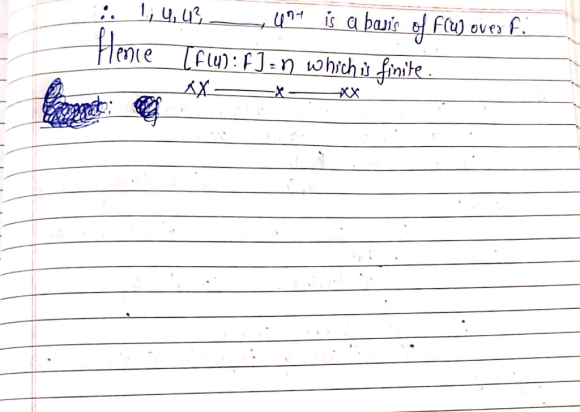 ∴ 1, u, u², ——, uⁿ⁻¹ is a basis of F(u) over F.
Hence [F(u) : F] = n which is finite.
xx —— x —— xx